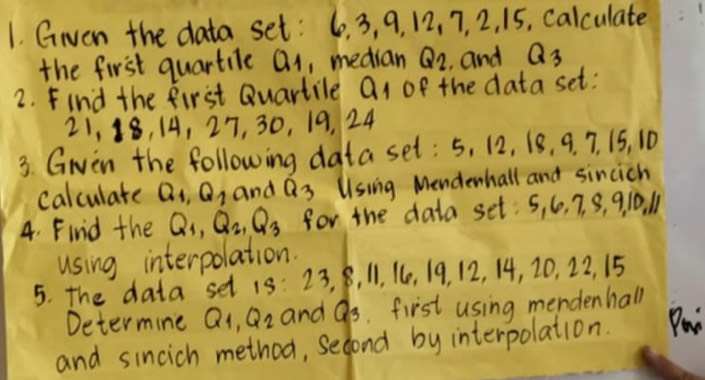 1. Given the data set: 6, 3, 9, 12, 7, 2, 15. Calculate
the first quartile Q1, median Q2, and Q3
2. Find the First Quartile Q1 of the data set:
21, 18, 14, 27, 30, 19, 24
3. Given the following data set: 5, 12, 18, 9, 7, 15, 10
Calculate Q1, Q2 and Q3 Using Mendenhall and Sincich
4. Find the Q1, Q2, Q3 for the data set: 5, 6, 7, 8, 9, 10, 11
using interpolation.
5. The data set is: 23, 8, 11, 16, 19, 12, 14, 20, 22, 15
Determine Q1, Q2 and Q3. first using mendenhall
and sincich method, Second by interpolation.